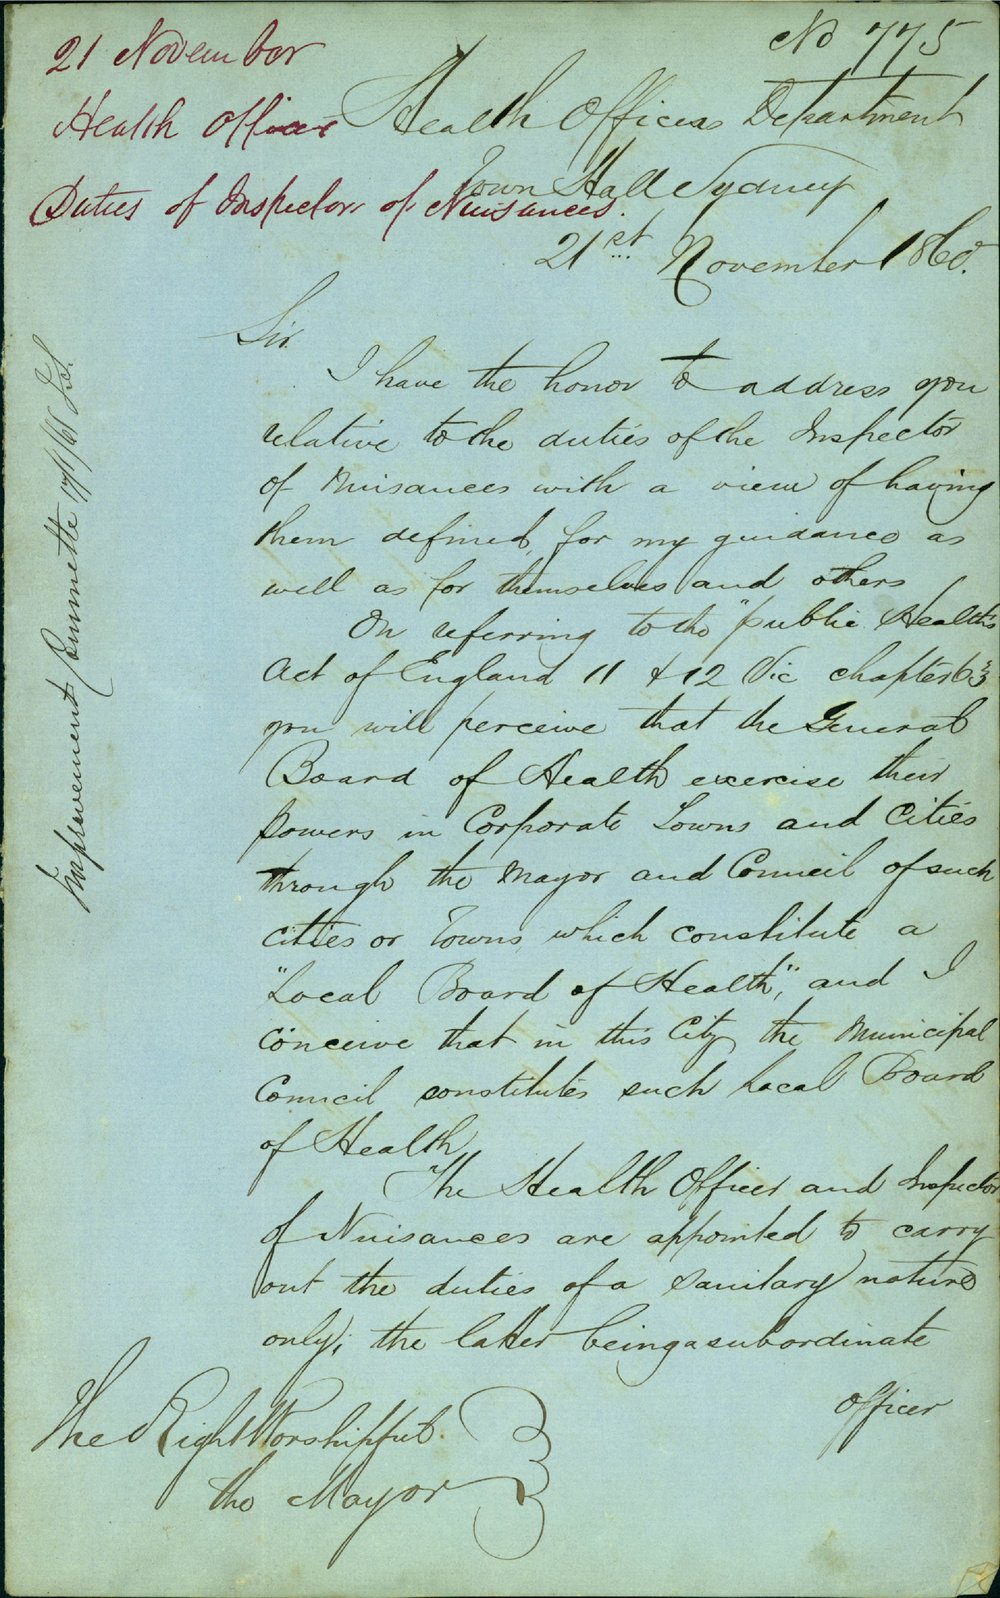 No 775
21 November
Health Officer
Duties of Inspector of Nuisances.
Health Officers Department
Town Hall Sydney
21st November 1860.
Sir
I have the honor to address you
relative to the duties of the Inspector
of Nuisances with a view of having
them defined, for my guidance as
well as for themselves and others
On referring to the "public Health's
Act of England 11 & 12 Vic chapter 63
you will perceive that the General
Board of Health exercise their
powers in Corporate Towns and Cities
through the Mayor and Council of such
cities or Towns, which constitute a
"Local Board of Health", and I
conceive that in this City the Municipal
Council constitutes such Local Board
of Health.
The Health Officer and Inspector
of Nuisances are appointed to carry
out the duties of a sanitary nature
only; the latter being a subordinate
Officer
The Right Worshipful
the Mayor
Improvement Committee 17/1/61